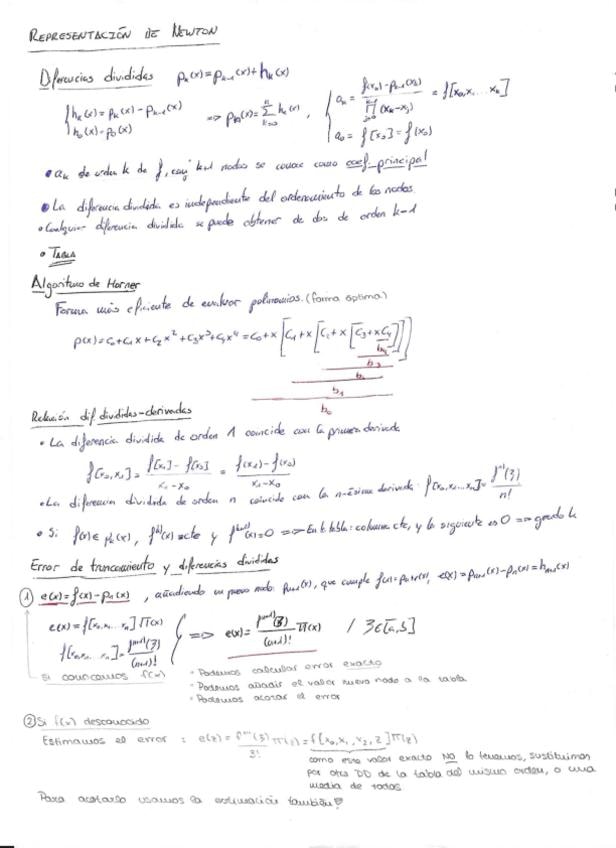 REPRESENTACIÓN DE NEWTON
Diferencias divididas pₖ(x)=pₖ₋₁(x)+hₖ(x)
{hₖ(x)=pₖ(x)-pₖ₋₁(x) h₀(x)=p₀(x) => pₙ(x)=Σₖ₌₀ⁿ hₖ(x), {aₖ = (f(xₖ)-pₖ₋₁(xₖ))/∏ⱼ₌₀ᵏ⁻¹(xₖ-xⱼ) = f[x₀,x₁...xₖ]
a₀ = f[x₀]=f(x₀)
• aₖ de orden k de f, k+1 nodos se conoce como coef. principal
• La diferencia dividida es independiente del ordenamiento de los nodos.
• Cualquier diferencia dividida se puede obtener de dos de orden k-1
• TABLA
Algoritmo de Horner
Forma más eficiente de evaluar polinomios. (forma óptima)
p(x)=c₀+c₁x+c₂x²+c₃x³+c₄x⁴=c₀+x[c₁+x[c₂+x[c₃+xc₄]]]
b₄
b₃
b₂
b₁
b₀
Relación dif divididas-derivadas
• La diferencia dividida de orden 1 coincide con la primera derivada
f[x₀,x₁]= (f[x₁]-f[x₀])/(x₁-x₀) = (f(x₁)-f(x₀))/(x₁-x₀)
• La diferencia dividida de orden n coincide con la n-ésima derivada: f[x₀,x₁...xₙ]= fⁿ⁾(ξ)/n!
• Si f(x)∈pₖ(x), fᵏ⁾(x)=cte y fᵏ⁺¹⁾(x)=0 => En la tabla: columna cte, y la siguiente es 0 => grado k
Error de truncamiento y diferencias divididas
① e(x)=f(x)-pₙ(x), añadiendo un nuevo nodo: pₙ₊₁(x), que cumple f(x)=pₙ₊₁(x), e(x)=pₙ₊₁(x)-pₙ(x)=hₙ₊₁(x)
e(x)=f[x₀,x₁,...xₙ]∏(x)
f[x₀,x₁...xₙ]= fⁿ⁺¹⁾(ξ)/(n+1)! } => e(x)= fⁿ⁺¹⁾(ξ)/(n+1)! ∏(x) / ξ∈[a,b]
si conocemos f(x)
• Podemos calcular error exacto
• Podemos añadir el valor nuevo nodo a la tabla
• Podemos acotar el error
② Si f(x) desconocido
Estimamos el error : e(z)= f'''(ξ)/3! ∏(z)=f[x₀,x₁,x₂,z]∏(z)
como este valor exacto NO lo tenemos, sustituimos
por otra DD de la tabla del mismo orden, o una
media de todas
Para acotarlo usamos la estimación también!